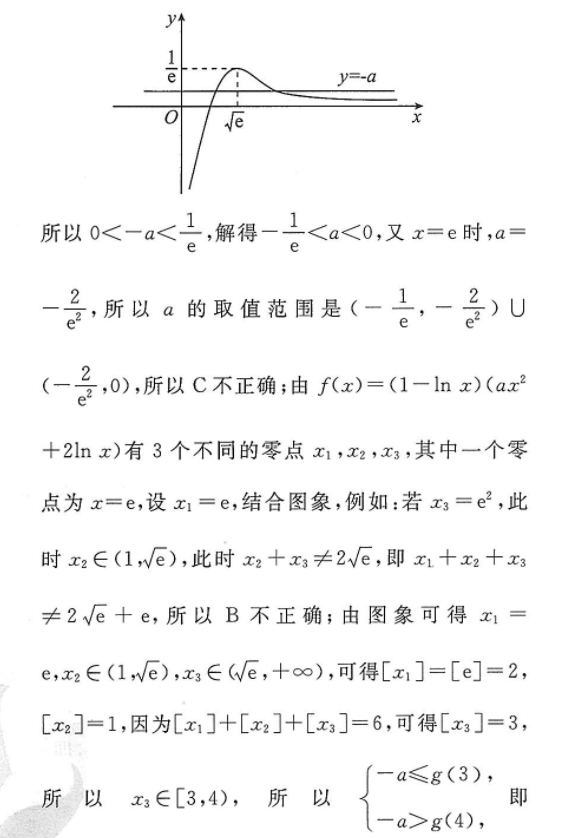 y
1/e
y=-a
O
√e
x
所以 0<-a<1/e,解得-1/e<a<0,又 x=e 时,a=
-2/e²,所以 a 的取值范围是(-1/e,-2/e²)∪
(-2/e²,0),所以 C 不正确;由 f(x)=(1-ln x)(ax²
+2ln x)有 3 个不同的零点 x₁,x₂,x₃,其中一个零
点为 x=e,设 x₁=e,结合图象,例如:若 x₃=e²,此
时 x₂∈(1,√e),此时 x₂+x₃≠2√e,即 x₁+x₂+x₃
≠2√e+e,所以 B 不正确;由图象可得 x₁=
e,x₂∈(1,√e),x₃∈(√e,+∞),可得[x₁]=[e]=2,
[x₂]=1,因为[x₁]+[x₂]+[x₃]=6,可得[x₃]=3,
所以 x₃∈[3,4),所以 {-a≤g(3), 即
-a>g(4),